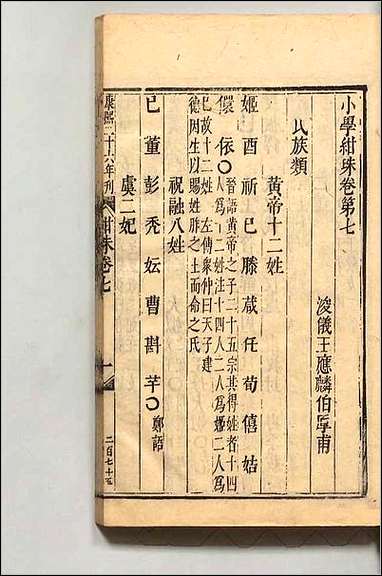 小學紺珠卷第七
浚儀王應麟伯厚甫
氏族類
黃帝十二姓
姬酉祈巳滕葴任荀僖姞
儇依〇晉語黃帝之子二十五宗其得姓者十四
人爲十二姓注十四人二人爲姬二人爲
巳故十二姓左傳衆仲曰天子建
德因生以賜姓胙之土而命之氏
祝融八姓
巳董彭禿妘曹斟芊〇鄭語
虞二妃
康熙二十六年刋
紺珠卷七
一
二百七十五